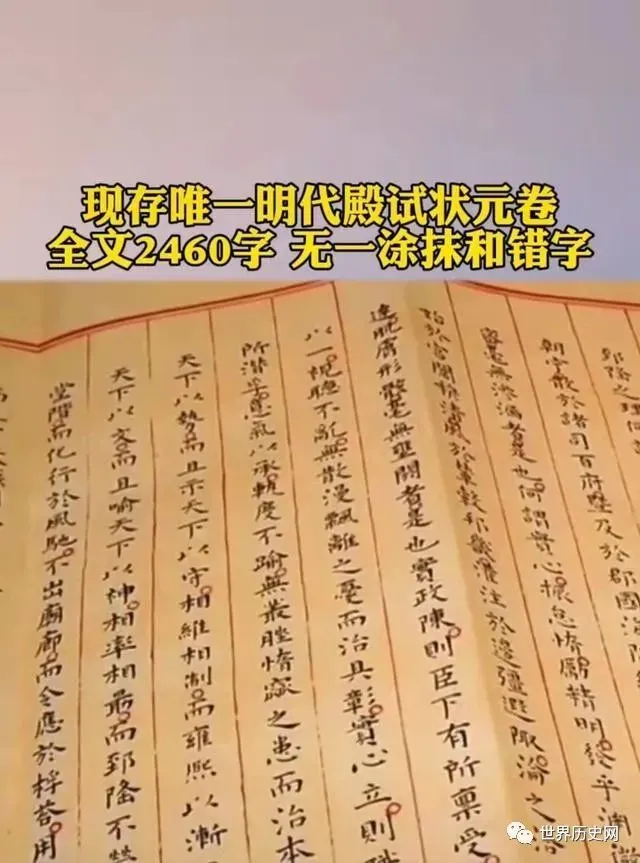 现存唯一明代殿试状元卷
全文2460字 无一涂抹和错字
郅隆之理何
朝宁散於諸司百府暨及於郡國海隅
容毫無滲漏者是也何謂實心振怠惰勵精明發乎淵
始於宮闈新清風於輦轂邦畿灌注於邊疆遐陬淪之
達肌膚形骸毫無壅閼者是也實政陳則臣下有所稟受
以一視聽不亂無散漫飄離之憂而治具彰實心立則職
所潛孚意氣以承軌度不踰無叢脞惰窳之患而治本
天下以勢而且示天下以守相維相制而雍熙以漸
天下以文而且喻天下以神相率相勗而郅隆不勞
堂階而化行於風馳不出廟廊而令應於桴答用
世界历史网